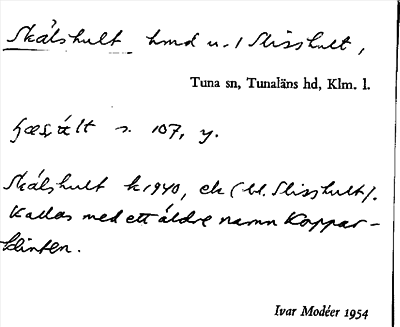 Skålshult hmd u. / Slisshult,
Tuna sn, Tunaläns hd, Klm. l.
s. 107, y.
Skålshult k 1940, ek (bl. Slisshult).
Kallas med ett äldre namn Koppar-
klinten.
Ivar Modéer 1954